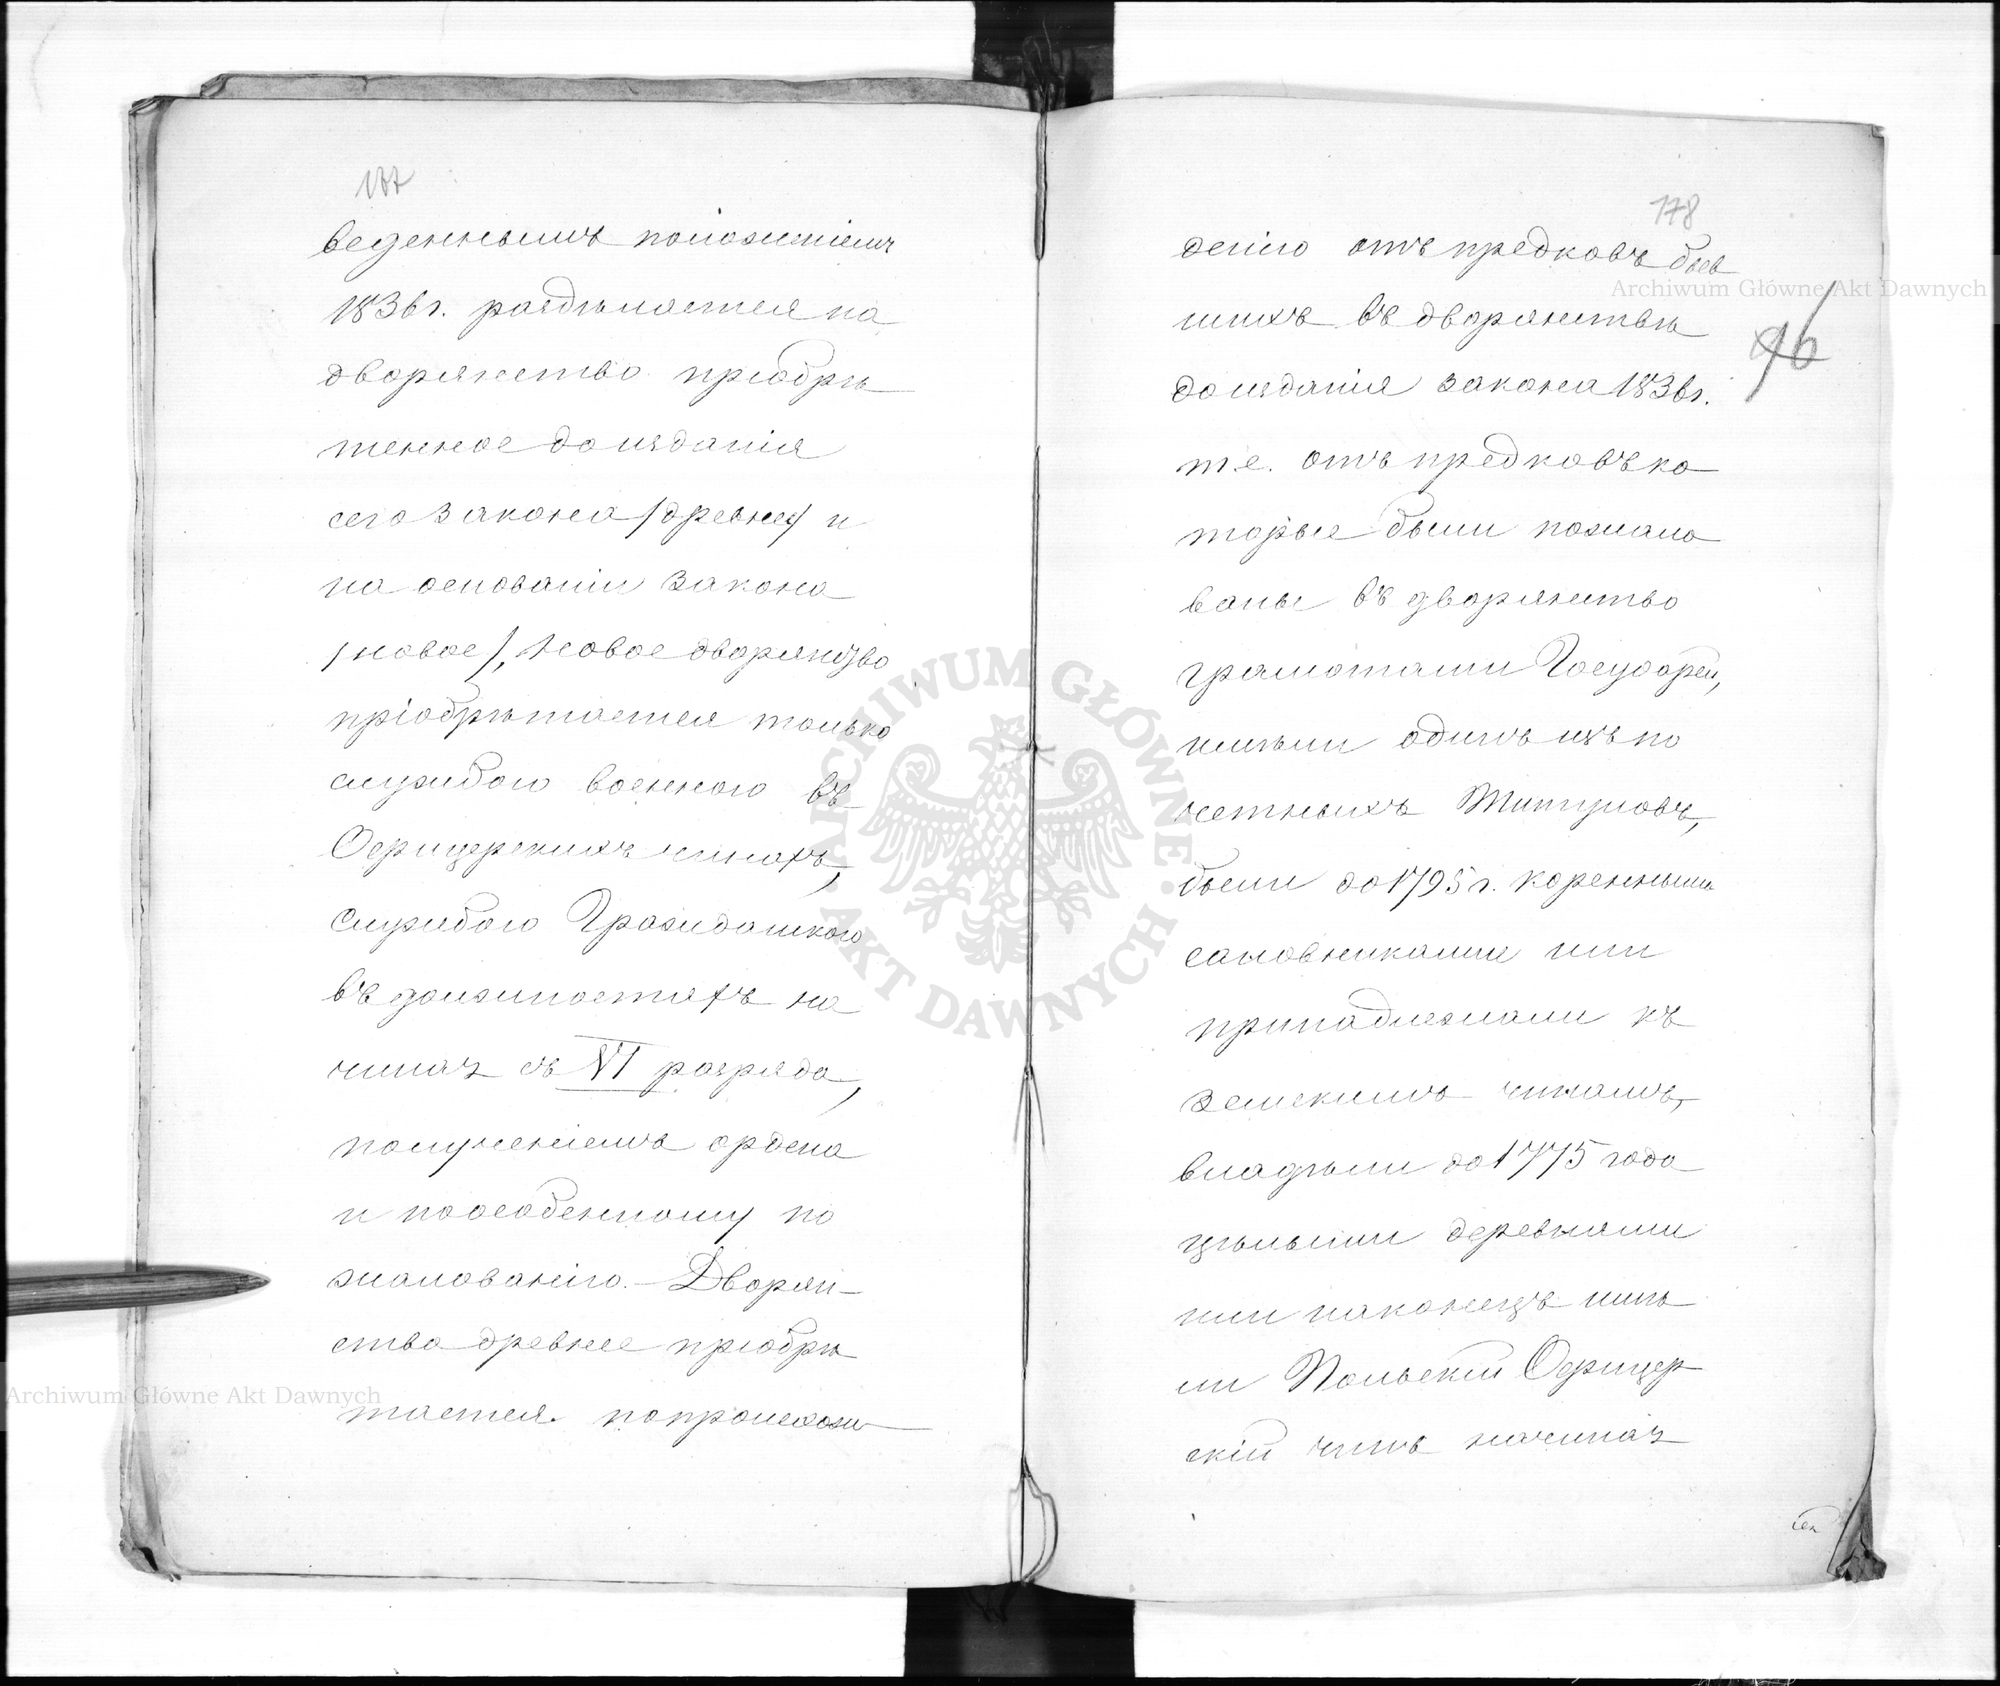 177
веденнымъ положеніемъ
1836г. раздѣляется на
дворянство пріобрѣ
тенное до изданія
сего закона /древнее/ и
на основаніи закона
/новое/, Новое дворянство
пріобрѣтается только
службою военною въ
Офицерскихъ чинахъ,
службою Гражданскою
въ должностяхъ на
чиная съ VI разряда,
полученіемъ ордена
и по особенному по
жалованію. — Дворян-
ство древнее пріобрѣ
тается по происхож
178
денію отъ предковъ быв
шихъ въ дворянствѣ
до изданія закона 1836г.
т.е. отъ предковъ ко
торые были пожало
ваны въ дворянство
грамотами Государей,
имѣли одинъ изъ по
четныхъ Титуловъ,
были до 1795 г. коренными
сановниками или
принадлежали къ
земскимъ чинамъ,
владѣли до 1775 года
цѣлыми деревнями
или наконецъ имѣ
ли Польскій Офицер
скій чинъ начиная
96
ARCHIWUM GŁÓWNE AKT DAWNYCH
Archiwum Główne Akt Dawnych
Archiwum Główne Akt Dawnych